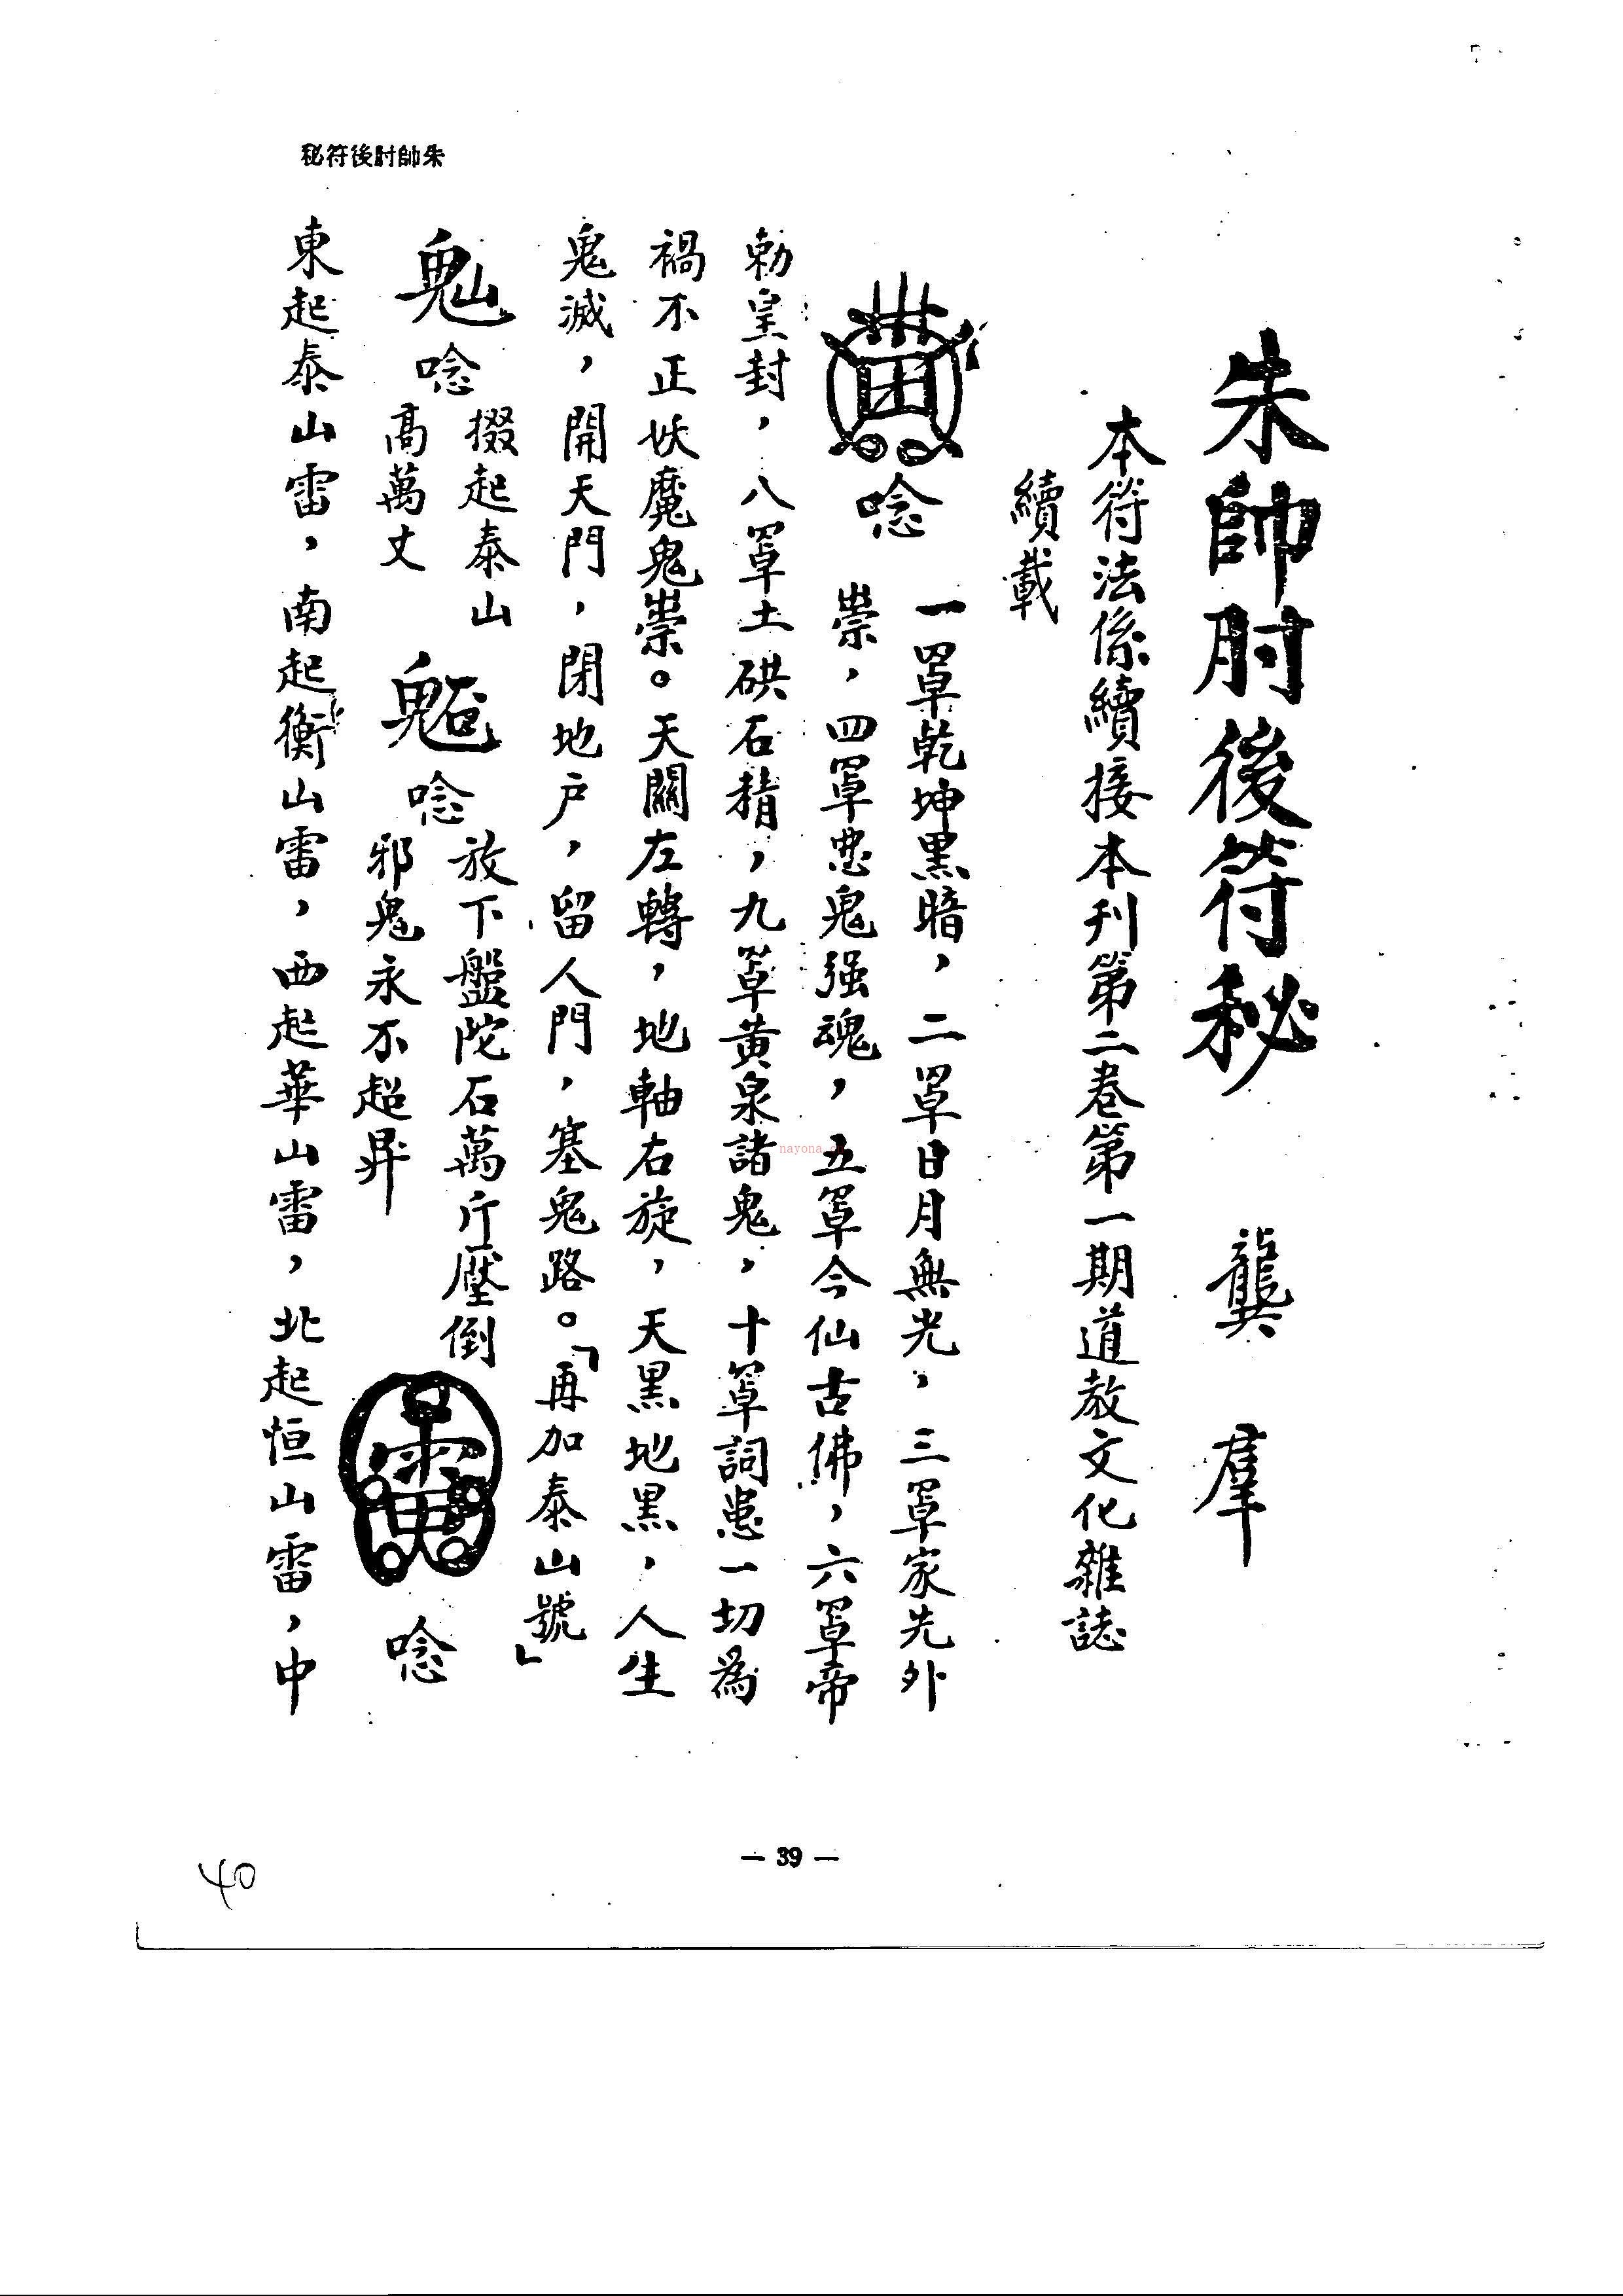 朱帥肘後符秘
朱帥肘後符秘　龔羣
本符法係續接本刊第二卷第一期道教文化雜誌
續載
唸
一罩乾坤黑暗，二罩日月無光，三罩家先外
祟，四罩惡鬼强魂，五罩今仙古佛，六罩帝
勅皇封，八罩土硔石精，九罩黄泉諸鬼，十罩詞患一切為
禍不正妖魔鬼祟。天關左轉，地軸右旋，天黑地黑，人生
鬼滅，開天門，閉地户，留人門，塞鬼路。「再加泰山號」
唸
掇起泰山
高萬丈
唸
放下盤陀石萬斤壓倒
邪鬼永不超昇
唸
東起泰山雷，南起衡山雷，西起華山雷，北起恒山雷，中
nayona
— 39 —
40